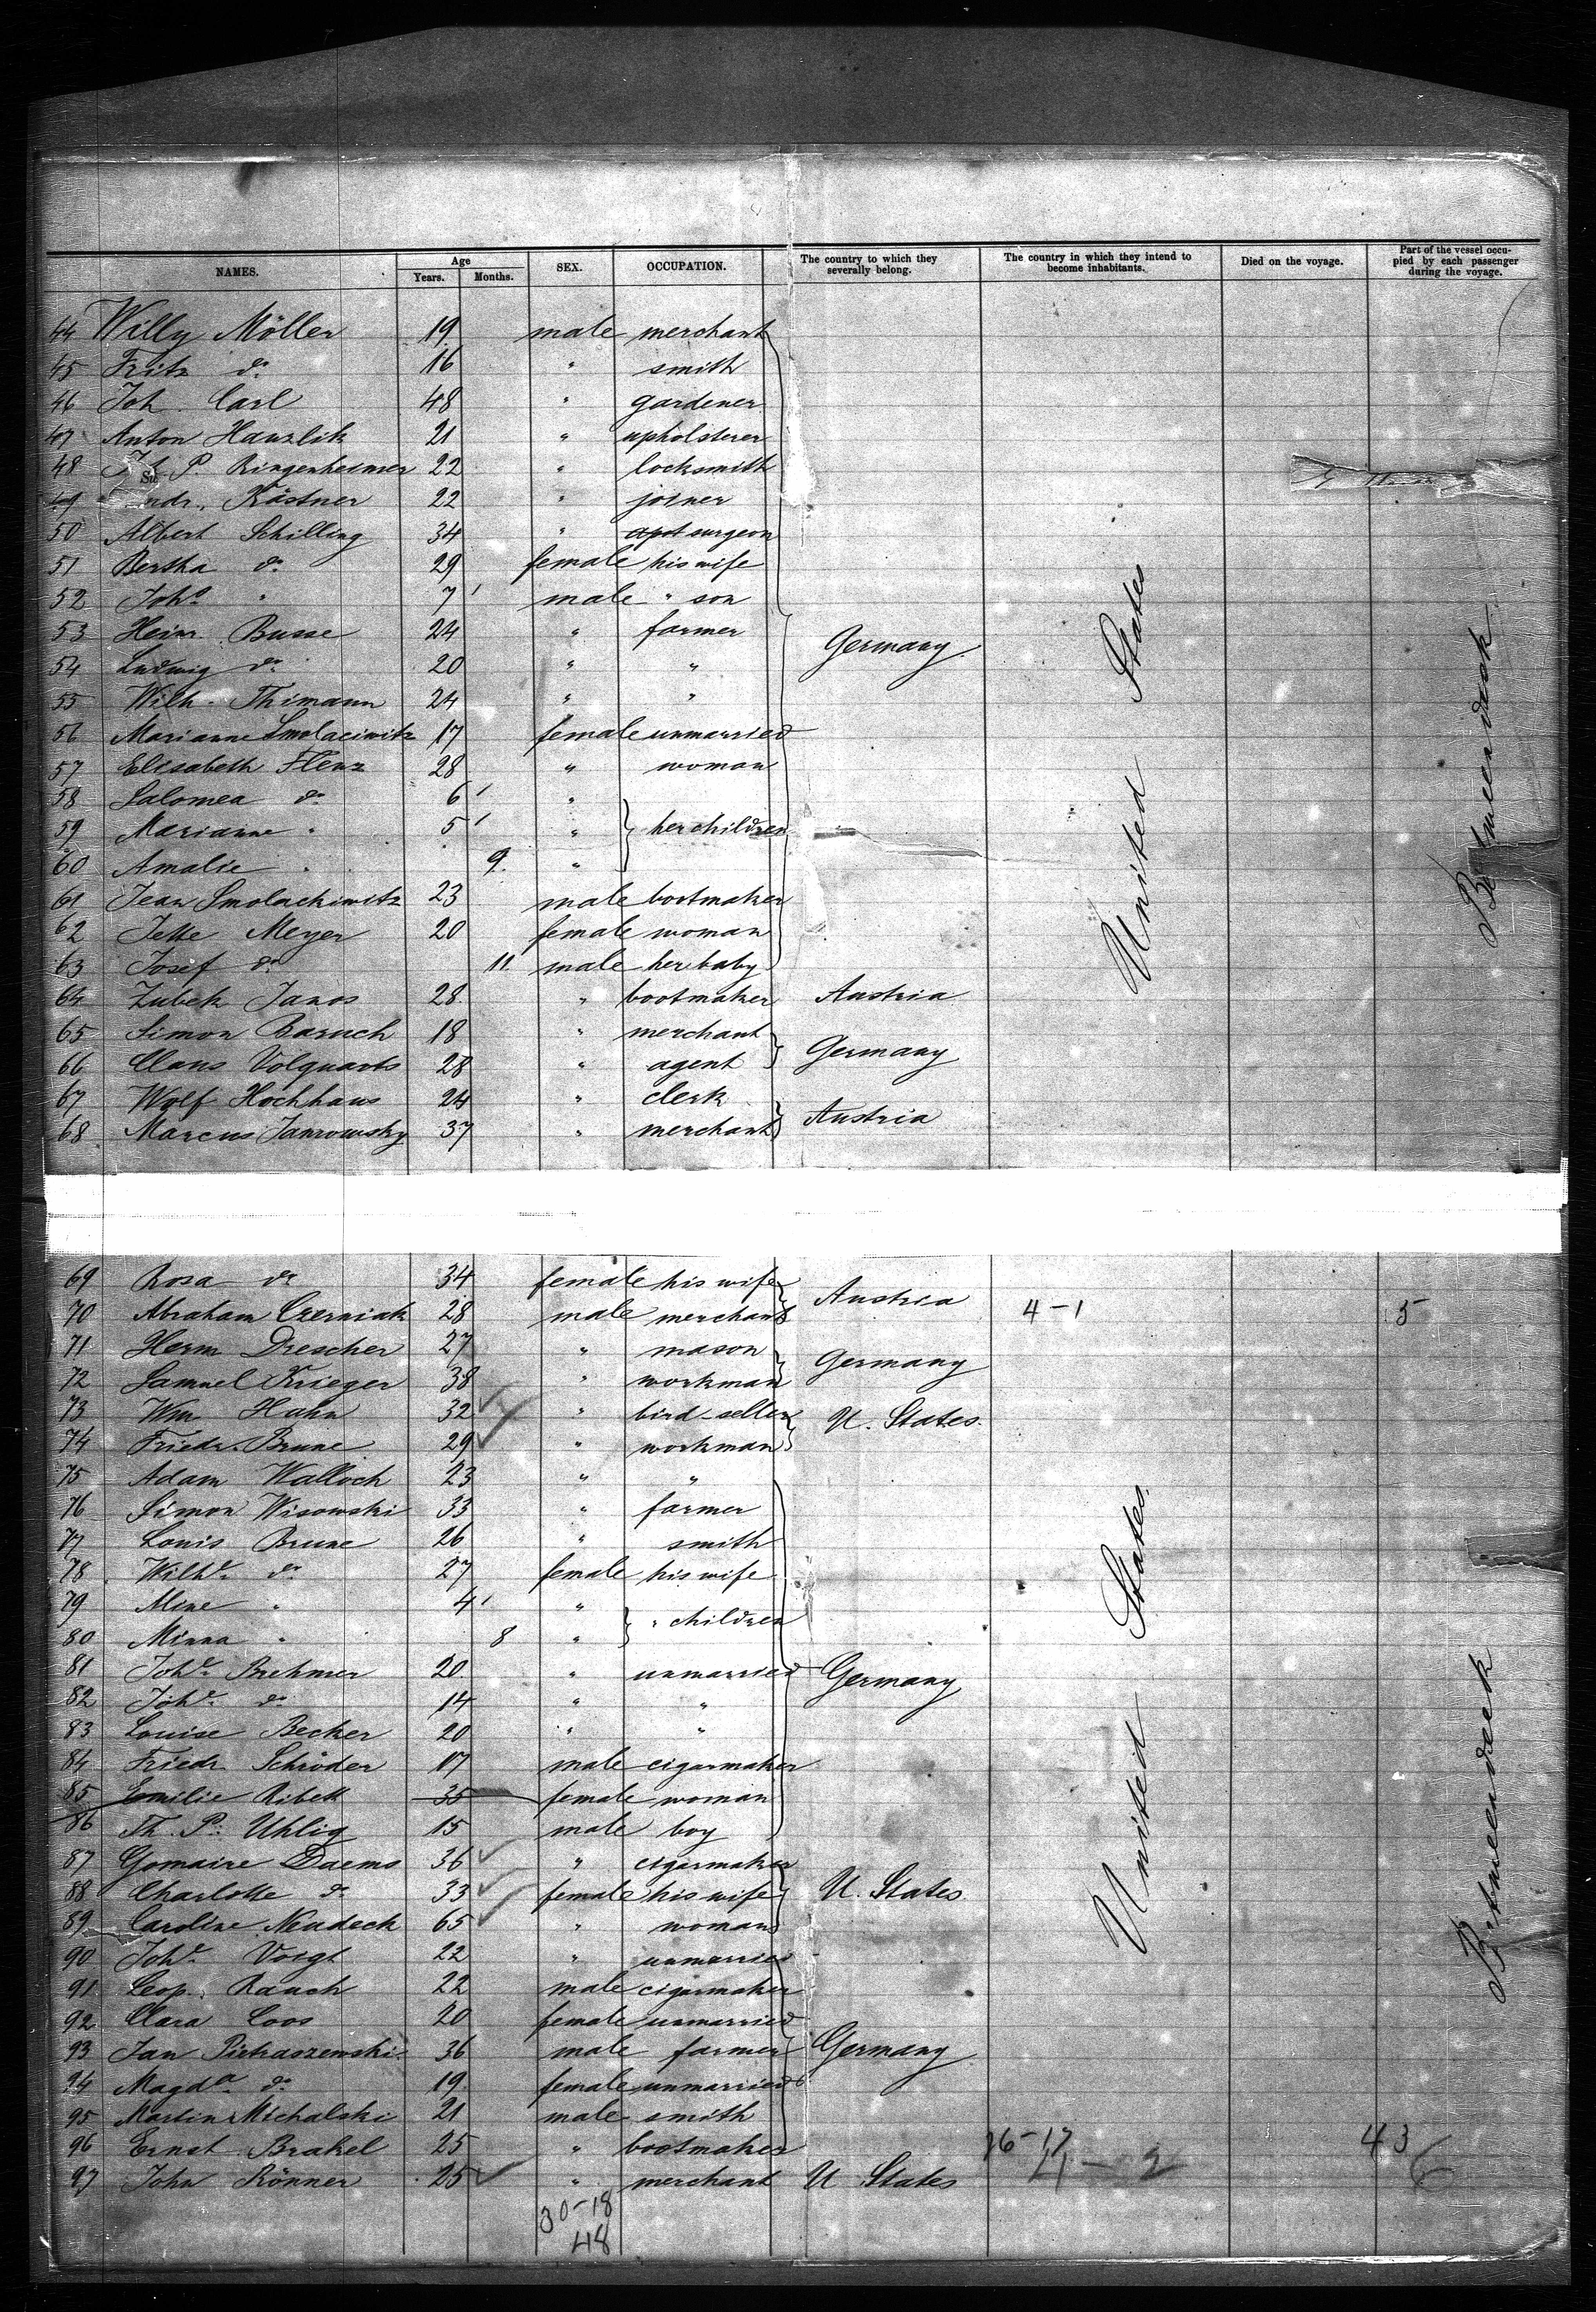 NAMES. Age Years. Months. SEX. OCCUPATION. The country to which they severally belong. The country in which they intend to become inhabitants. Died on the voyage. Part of the vessel occupied by each passenger during the voyage.
44 Willy Möller 19 male merchant
45 Fritz do 16 " smith
46 Joh. Carl 48 " gardener
47 Anton Hanzlik 21 " upholsterer
48 P. Ringenheimer 22 " locksmith
49 ndr. Kästner 22 " joiner
50 Albert Schilling 34 " surgeon
51 Bertha do 29 female his wife
52 Johs " 7 male " son
53 Heinr. Busse 24 " farmer Germany
54 Ludwig do 20 " "
55 Wilh. Thimann 24 " "
56 Marianne Smolaciwitz 17 female unmarried
57 Elisabeth Flenz 28 " woman
58 Salomea do 6 "
59 Marianne " 5 " her children
60 Amalie " 9 "
61 Jean Smolackiwitz 23 male bootmaker
62 Jette Meyer 20 female woman
63 Josef do 11 male her baby
64 Zubek Janos 28 " bootmaker Austria
65 Simon Baruch 18 " merchant
66 Claus Volquarts 28 " agent Germany
67 Wolf Hochhaus 24 " clerk
68 Marcus Janrowsky 37 " merchant Austria
United States
Betweendeck
69 Rosa do 34 female his wife
70 Abraham Czerniak 28 male merchant Austria 4-1 5
71 Herm Drescher 27 " mason
72 Samuel Krieger 38 " workman Germany
73 Wm Hahn 32 " bird-seller U. States.
74 Friedr. Brune 29 " workman
75 Adam Walloch 23 " "
76 Simon Wisowski 33 " farmer
77 Louis Brune 26 " smith
78 Wilhe do 27 female his wife
79 Mine " 4 " " children
80 Minna " 8 "
81 Johe Brehmer 20 " unmarried Germany
82 Johe do 14 " "
83 Louise Becker 20 " "
84 Friedr Schröder 17 male cigarmaker
85 Emilie Ribett 35 female woman
86 Th. P. Uhlig 15 male boy
87 Gomaire Daems 36 " cigarmaker
88 Charlotte do 33 female his wife U. States
89 Caroline Neudeck 65 " woman
90 Johe Voigt 22 " unmarried
91 Leop. Rauch 22 male cigarmaker
92 Clara Coos 20 female unmarried
93 Jan Pietraszewski 36 male farmer Germany
94 Magda do 19 female unmarried
95 Martin Michalski 21 male smith
96 Ernst Brakel 25 " bootmaker 26-17 43
97 John Rönner 25 " merchant U States 4-2 6
United States
Betweendeck
30-18
48